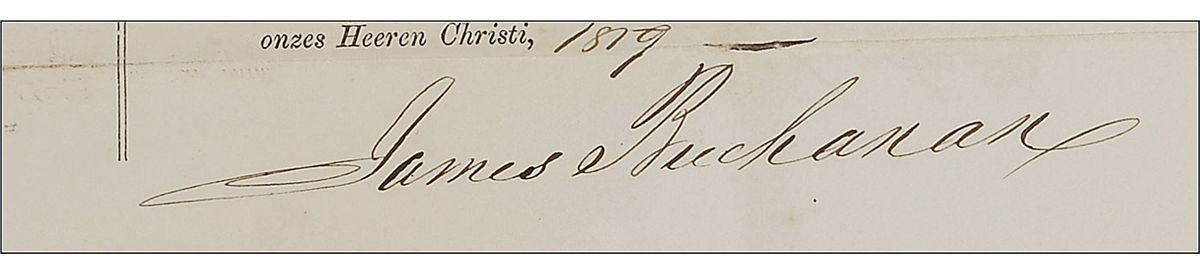 onzes Heeren Christi, 1819
James Buchanan